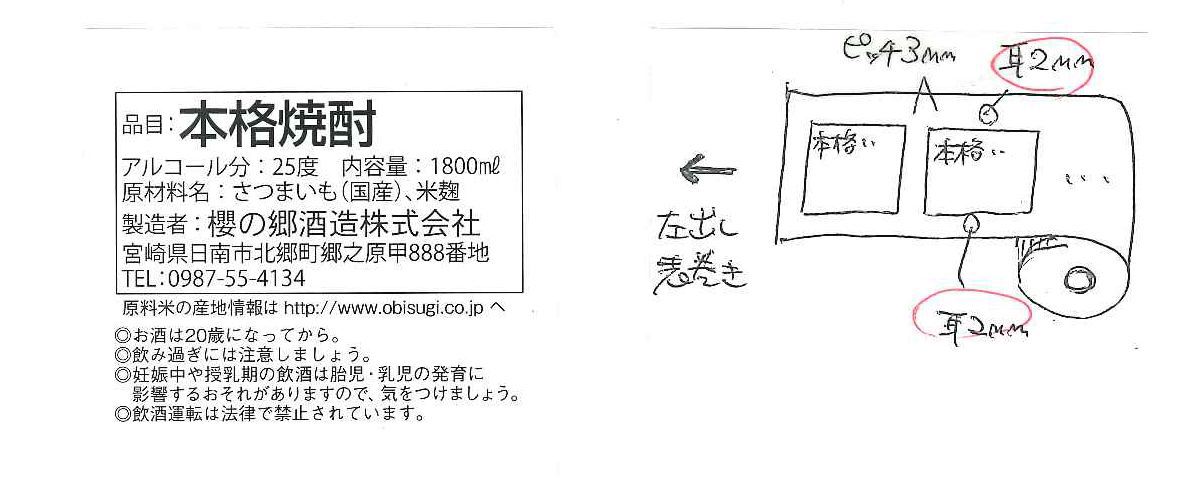 品目：本格焼酎
アルコール分：25度　内容量：1800mℓ
原材料名：さつまいも（国産）、米麹
製造者：櫻の郷酒造株式会社
宮崎県日南市北郷町郷之原甲888番地
TEL：0987-55-4134
原料米の産地情報は http://www.obisugi.co.jp へ
◎お酒は20歳になってから。
◎飲み過ぎには注意しましょう。
◎妊娠中や授乳期の飲酒は胎児・乳児の発育に
影響するおそれがありますので、気をつけましょう。
◎飲酒運転は法律で禁止されています。
ピッ43mm
耳2mm
本格‥
本格‥
…
←
左出し
表巻き
耳2mm